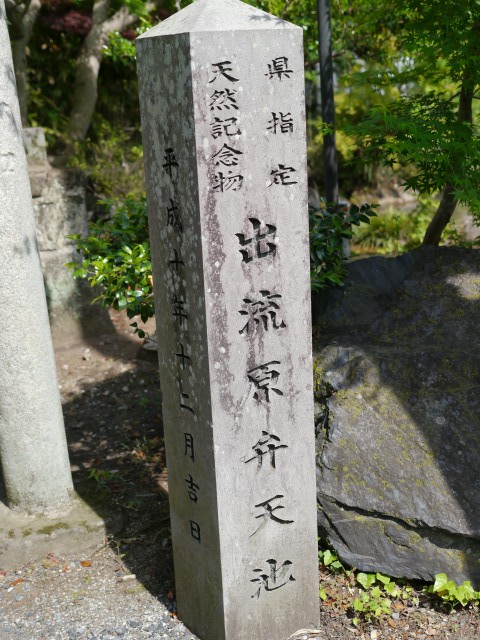 県指定
天然記念物
出流原弁天池
平成十年十二月吉日